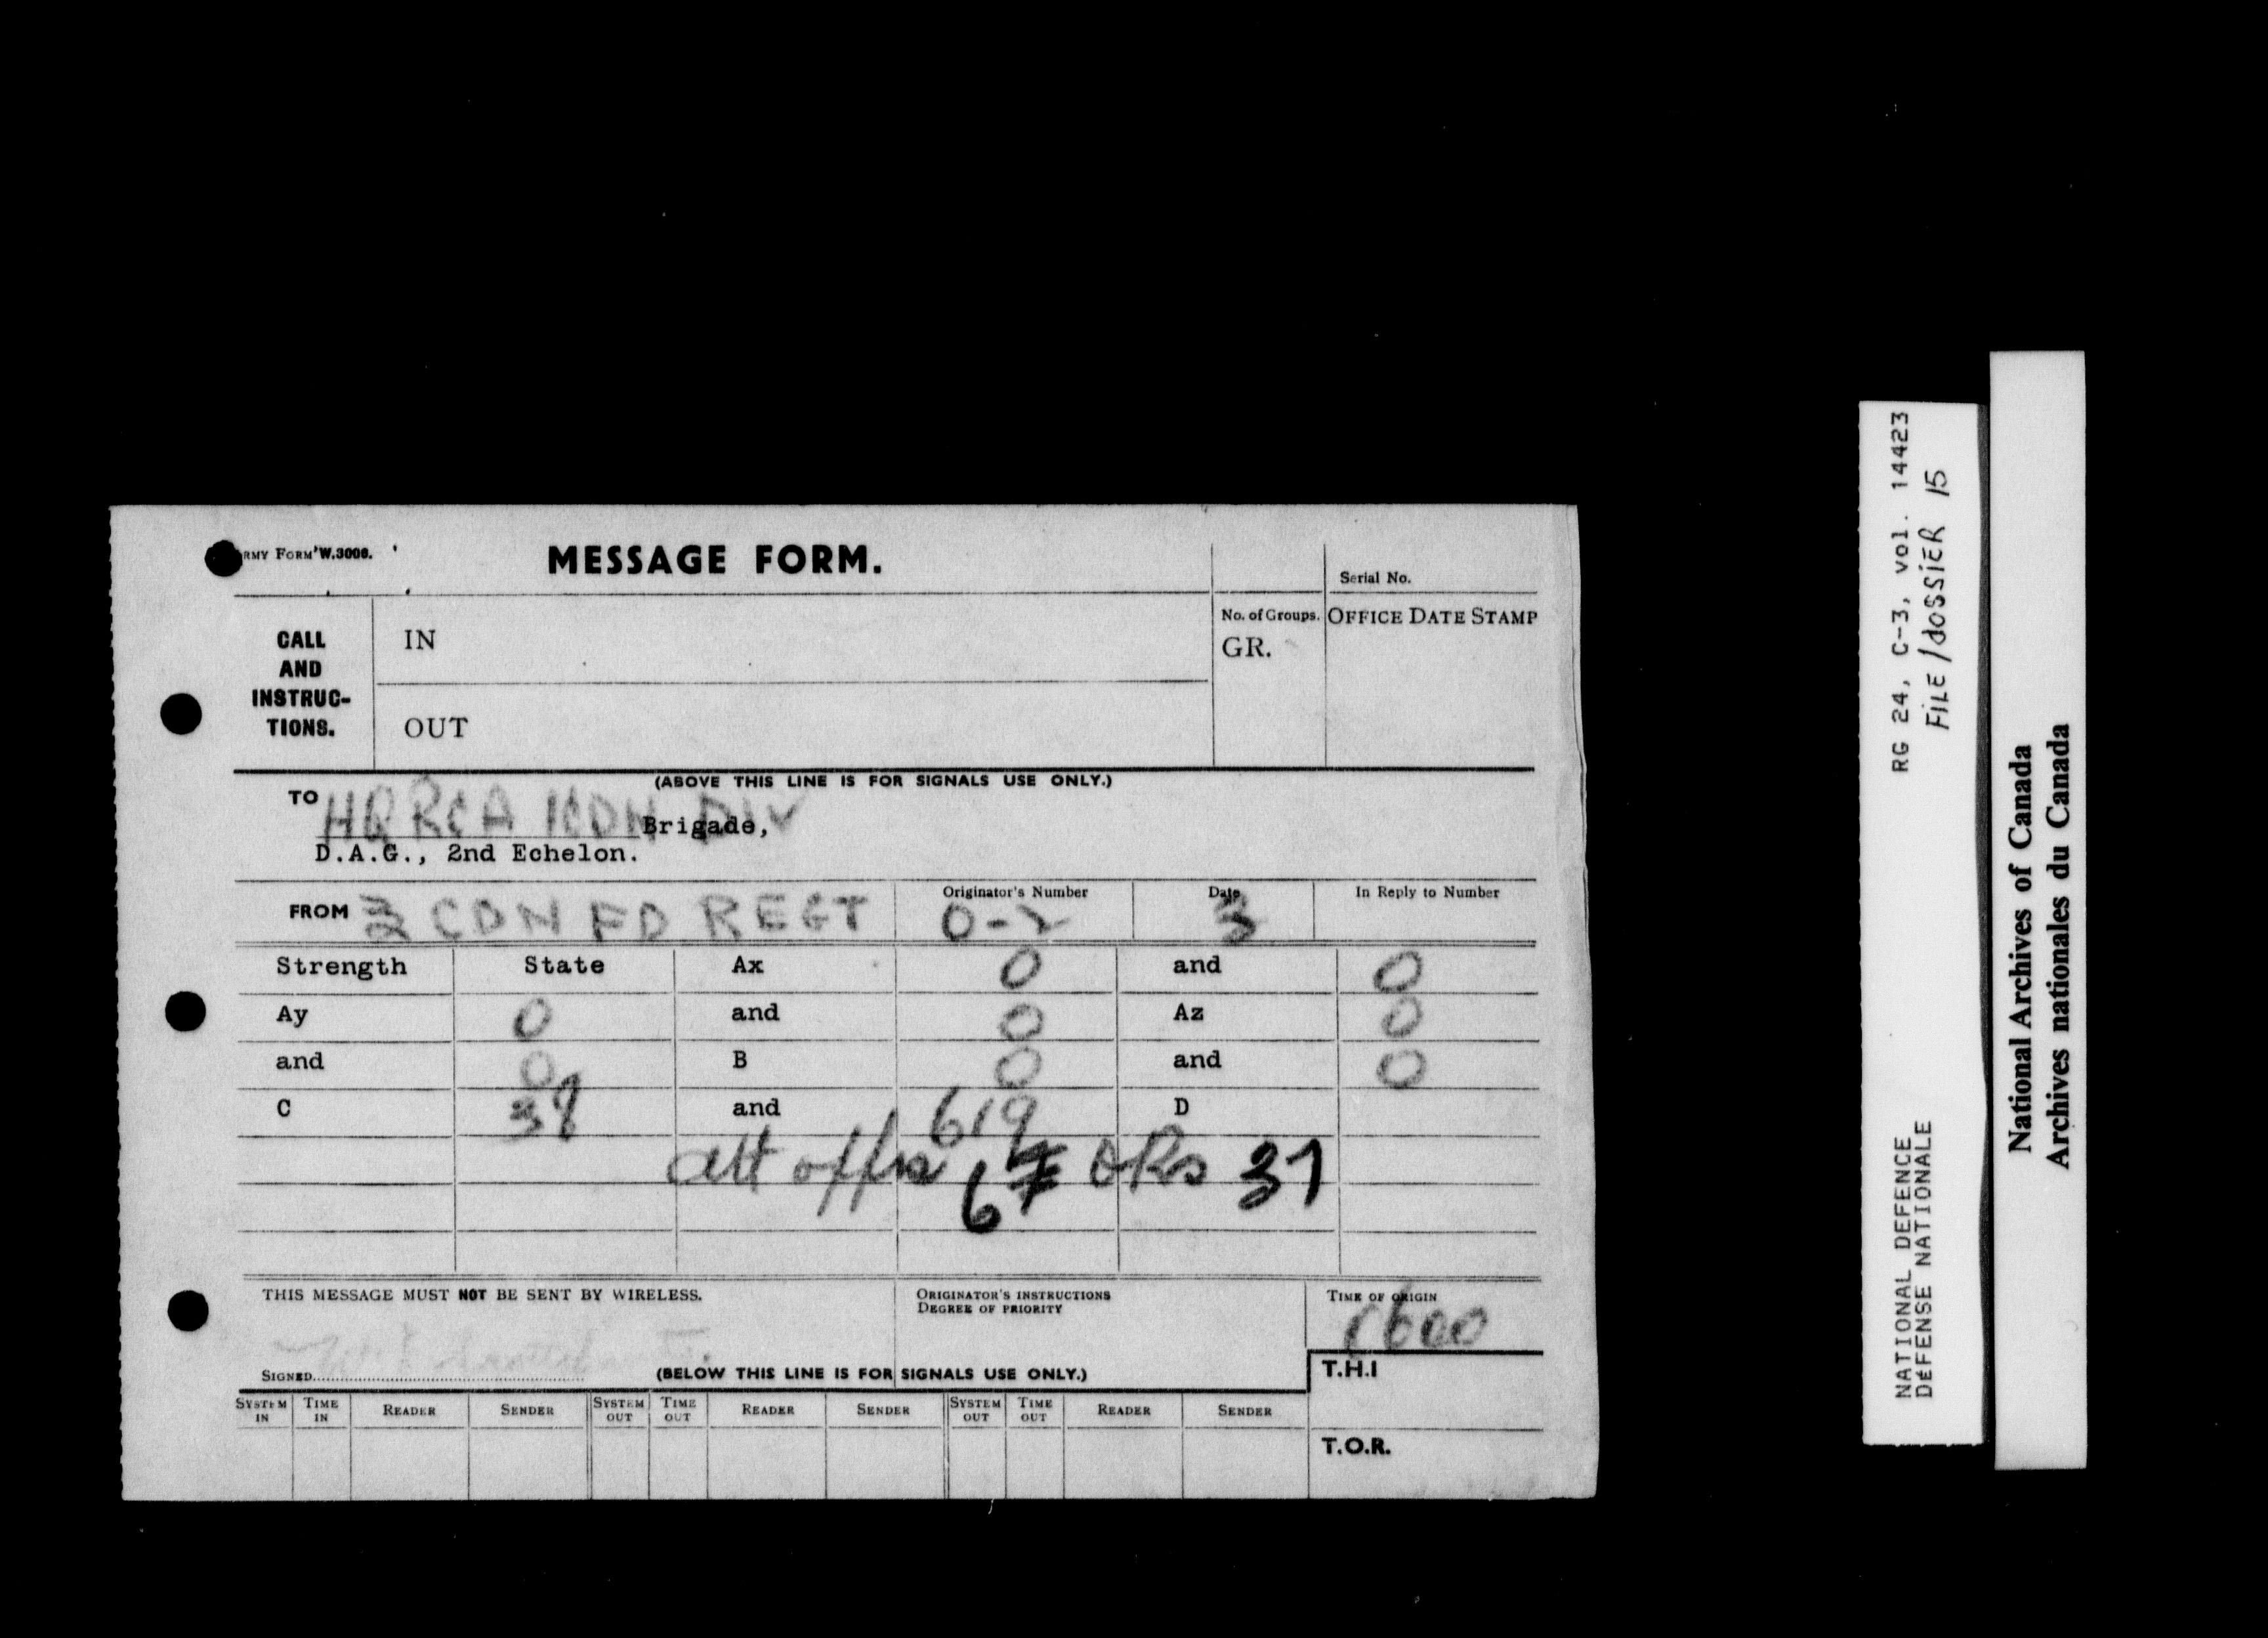 ARMY FORM W.3000.
MESSAGE FORM.
Serial No.
CALL AND INSTRUC-TIONS.
IN
OUT
No. of Groups.
GR.
OFFICE DATE STAMP
(ABOVE THIS LINE IS FOR SIGNALS USE ONLY.)
TO HQ RCA 1 CDN DIV Brigade,
D.A.G., 2nd Echelon.
FROM CDN FD REGT
Originator's Number O-2
Date 3
In Reply to Number
Strength State Ax 0 and 0
Ay 0 and 0 Az 0
and 0 B 0 and 0
C 38 and 619 D
att offrs 6 ORs 37
THIS MESSAGE MUST NOT BE SENT BY WIRELESS.
ORIGINATOR'S INSTRUCTIONS
DEGREE OF PRIORITY
TIME OF ORIGIN
1600
SIGNED
(BELOW THIS LINE IS FOR SIGNALS USE ONLY.)
T.H.I
SYSTEM IN TIME IN READER SENDER SYSTEM OUT TIME OUT READER SENDER SYSTEM OUT TIME OUT READER SENDER
T.O.R.
RG 24, C-3, vol. 14423
FILE/dOSSiER 15
NATIONAL DEFENCE
DÉFENSE NATIONALE
National Archives of Canada
Archives nationales du Canada